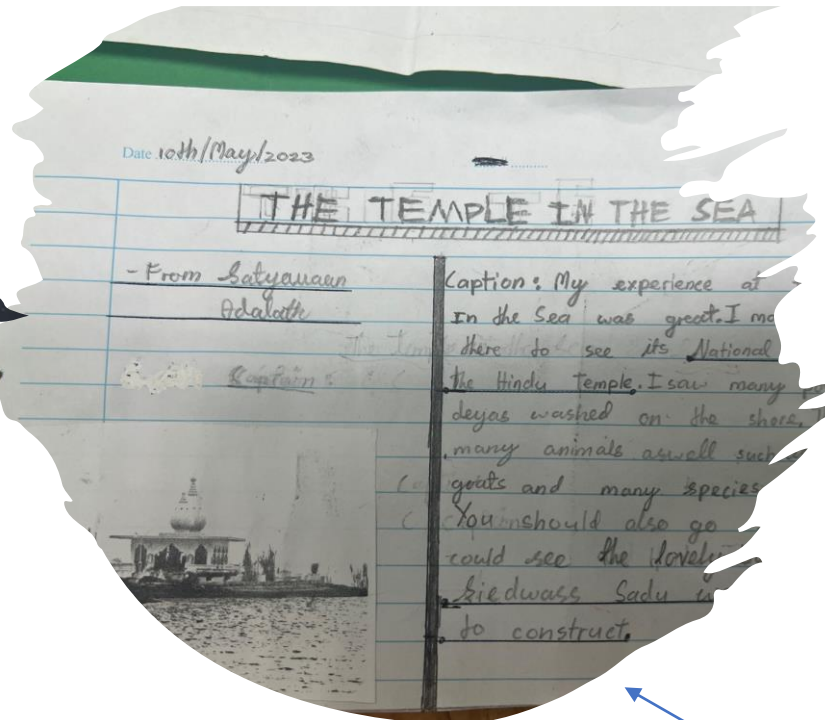 Date 10th/May/2023
THE TEMPLE IN THE SEA
- From Satyanaan
Adalath
Caption:
Caption: My experience at
In the Sea was great. I
there to see its National
the Hindu Temple. I saw many
deyas washed on the shore.
many animals aswell such
goats and many species
You should also go
could see the lovely
Siedwass Sadu
to construct.